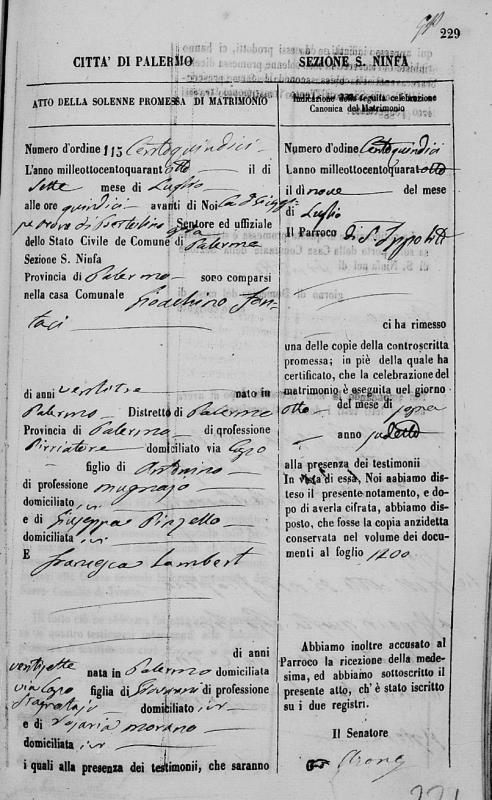 229
CITTA' DI PALERMO
ATTO DELLA SOLENNE PROMESSA DI MATRIMONIO
Numero d'ordine 115 Centoquindici
L'anno milleottocentoquarant otto il dì
Sette mese di Luglio
alle ore quindici avanti di Noi
Sentore ed uffiziale
dello Stato Civile de Comune di Palermo
Sezione S. Ninfa
Provincia di Palermo sono comparsi
nella casa Comunale Gioachino Fon-
taci
di anni ventitre nato in
Palermo Distretto di Palermo
Provincia di Palermo di qrofessione
Pirriatore domiciliato via Capo
figlio di Antonino
di professione mugnajo
domiciliato ivi
e di Giuseppa Pizzello
domiciliata ivi
E Francesca Lambert
di anni
ventisette nata in Palermo domiciliata
via Capo figlia di Giovanni di professione
domiciliato ivi
e di Rosaria Morano
domiciliata ivi
i quali alla presenza dei testimonii, che saranno
SEZIONE S. NINFA
Indicazione della seguita celebrazione
Canonica del Matrimonio
Numero d'odine Centoquindici
L'anno milleottocentoquarant otto
il dì nove del mese
di Luglio
Il Parroco di S. Ippolito
ci ha rimesso
una delle copie della controscritta
promessa; in piè della quale ha
certificato, che la celebrazione del
matrimonio è eseguita nel giorno
otto del mese di sopra
anno sudetto
alla presenza dei testimonii
In vista di essa, Noi aabiamo dis-
teso il presente notamento, e do-
po di averla cifrata, abbiamo dis-
posto, che fosse la copia anzidetta
conservata nel volume dei docu-
menti al foglio 1200
Abbiamo inoltre accusato al
Parroco la ricezione della mede-
sima, ed abbiamo sottoscritto il
presente atto, ch' è stato iscritto
su i due registri.
Il Senatore